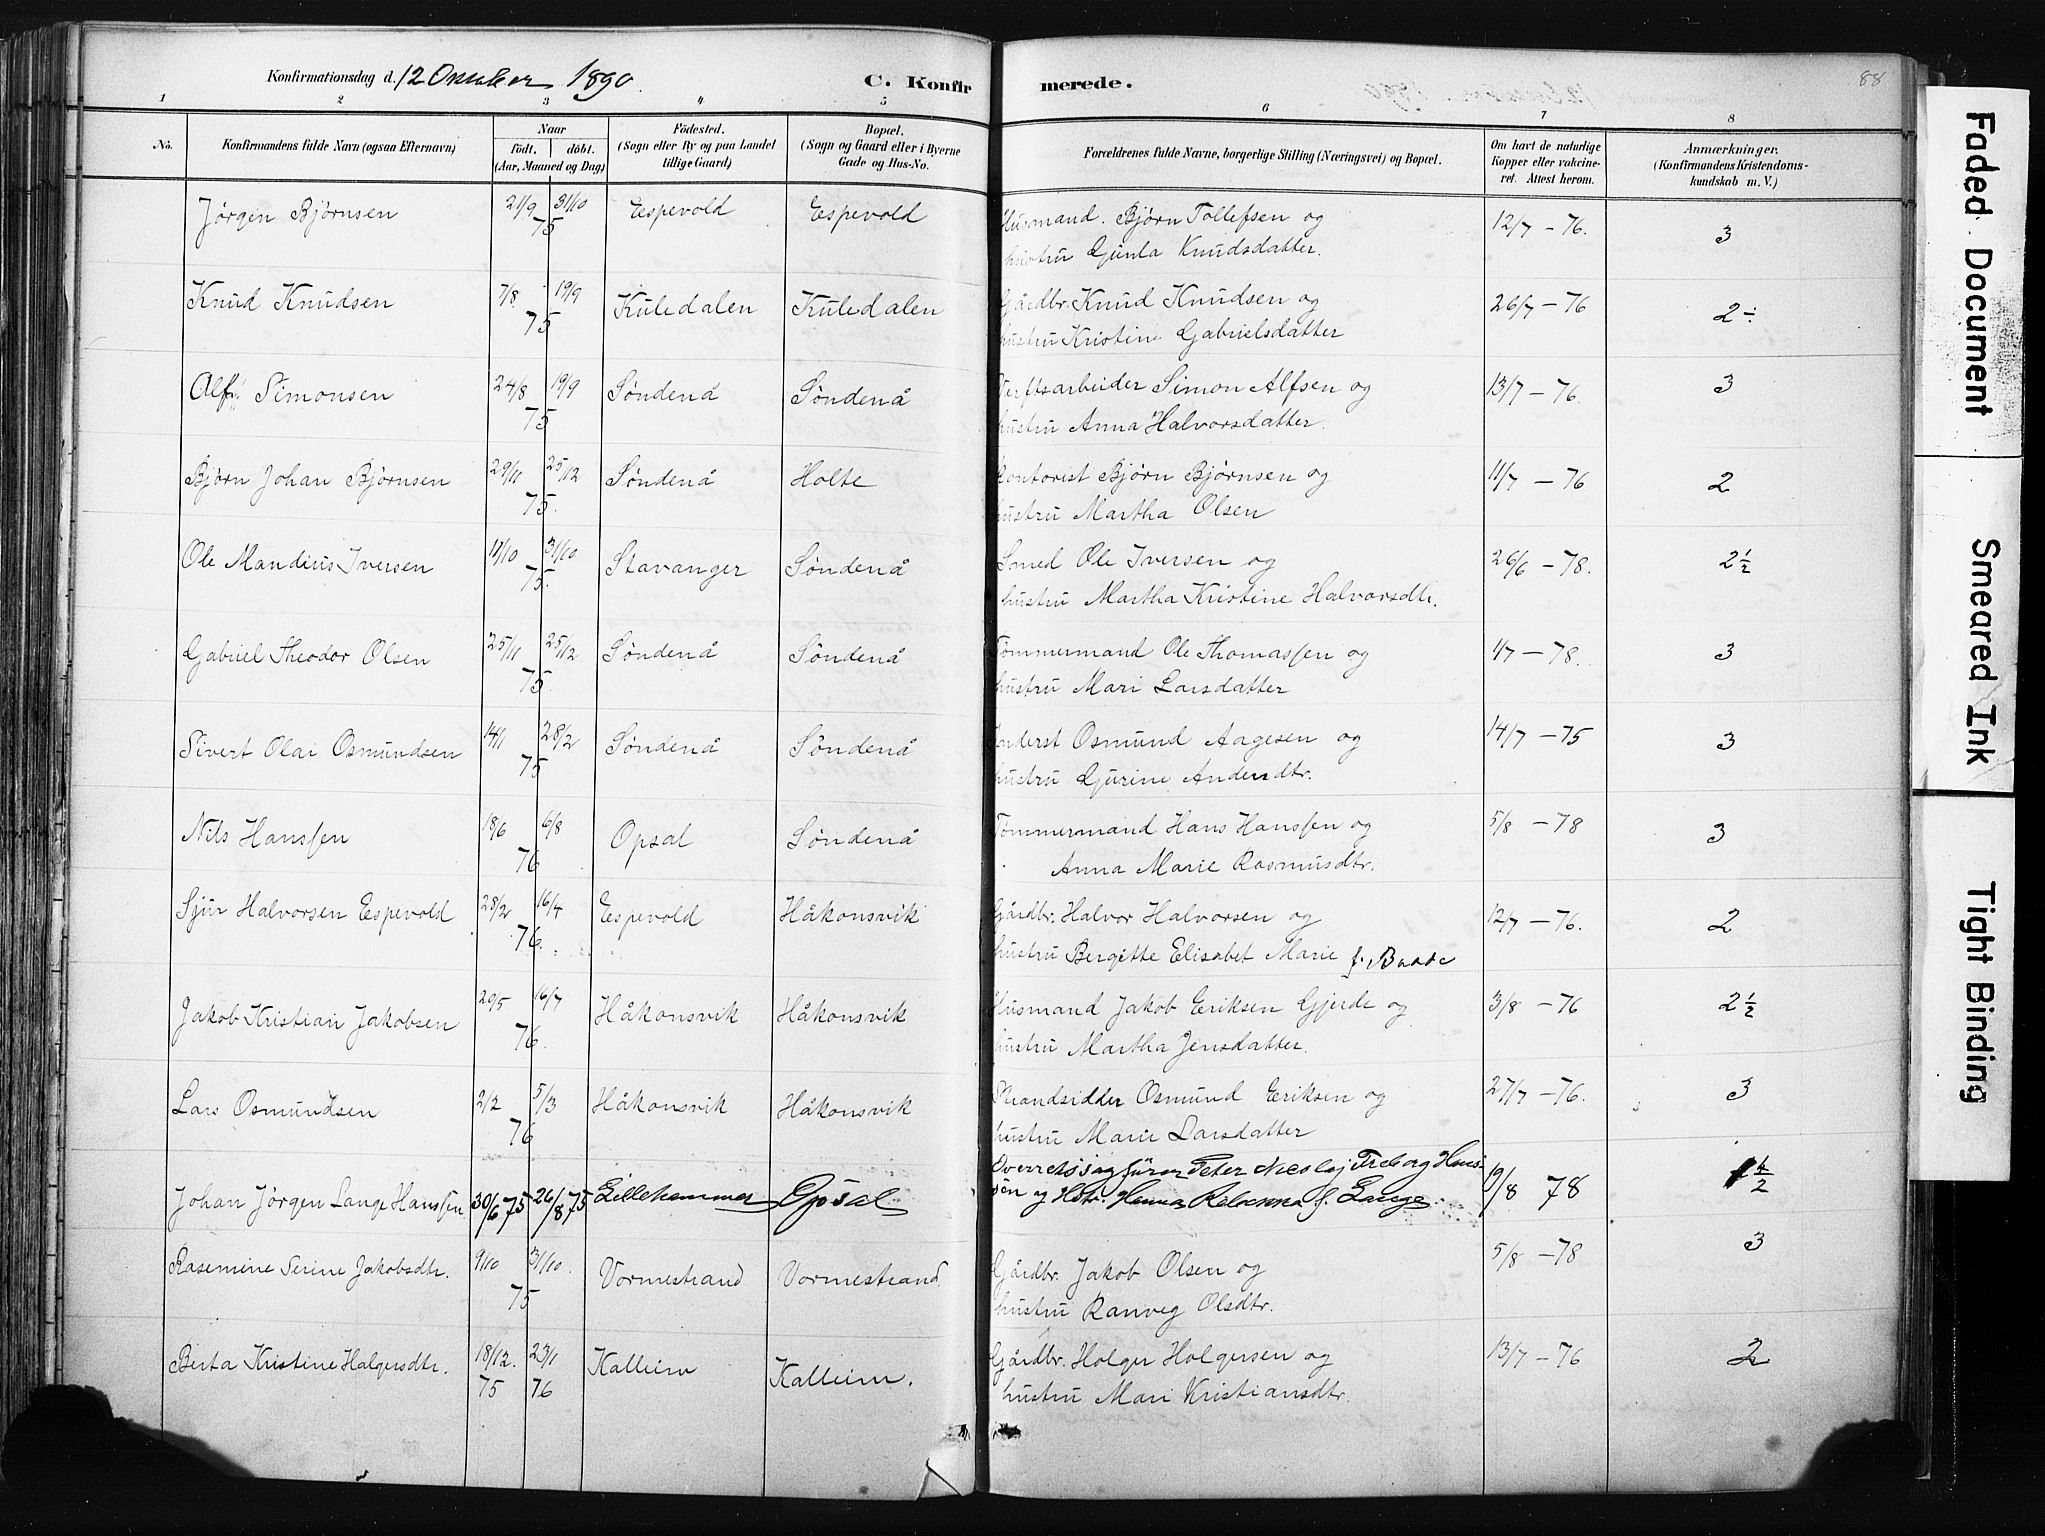 Konfirmationsdag d. 12 Oktober 1890. C. Konfir merede. 88
1 2 3 4 5 6 7 8
No. Konfirmandens fulde Navn (ogsaa Efternavn) Naar født. døbt. (Aar, Maaned og Dag) Födested. (Sogn eller By og paa Landet tillige Gaard) Bopæl. (Sogn og Gaard eller i Byerne Gade og Hus-No. Forældrenes fulde Navne, borgerlige Stilling (Næringsvei) og Bopæl. Om havt de naturlige Kopper eller vakcineret. Attest herom. Anmærkninger. (Konfirmandens Kristendomskundskab m. V.)
Jørgen Bjørnsen 21/9 31/10 75 Espevold Espevold Husmand. Bjørn Tollefsen og 12/7 - 76. 3
hustru Gunla Knudsdatter.
Knud Knudsen 7/8. 19/9 75 Kuledalen Kuledalen Gårdbr. Knud Knudsen og 26/7 - 76 2÷
hustru Kristine Gabrielsdatter
Alf Simonsen 24/8 19/9 75 Søndenå Søndenå Verftsarbeider Simon Alfsen og 13/7 - 76. 3
hustru Anna Halvorsdatter.
Bjørn Johan Bjørnsen 29/11 25/12 75. Søndenå Holte Kontorist Bjørn Bjørnsen og 11/7 - 76 2
hustru Martha Olsen
Ole Mandius Iversen 11/10 31/10 75. Stavanger Søndenå Smed Ole Iversen og 26/6 - 78. 2 1/2
hustru Martha Kristine Halvorsdtr.
Gabriel Theodor Olsen 25/11 25/12 75. Søndenå Søndenå Tømmermand Ole Thomassen og 1/7 - 78. 3
hustru Mari Larsdatter
Sivert Olai Osmundsen 14/1 28/2 75 Søndenå Søndenå Inderst Osmund Aagesen og 14/7 - 75 3
hustru Gjurine Andersdtr.
Nils Hanssen 18/6 6/8 76 Opsal Søndenå Tømmermand Hans Hanssen og 5/8 - 78 3
Anna Marie Rasmusdtr.
Sjur Halvorsen Espevold 28/2 16/4 76. Espevold Håkonsvik Gårdbr. Halvor Halvorsen og 12/7 - 76. 2
hustru Bergitte Elisabet Marie f. Baade
Jakob Kristian Jakobsen 29/5 16/7 76. Håkonsvik Håkonsvik Husmand Jakob Eriksen Gjerde og 3/8 - 76 2 1/2
hustru Martha Jensdatter.
Lars Osmundsen 2/2 5/3 76 Håkonsvik Håkonsvik Strandsidder Osmund Eriksen og 27/7 - 76. 3
hustru Marie Larsdatter
Johan Jörgen Lange Hanssen 30/6 75 26/8 75 Lillehammer Opsal Overretssagfører Peter Nicolaj Treborg Hans- 9/8 78 1 1/2
sen og Hstr. Hanna f. Lange.
Rasmine Serine Jakobsdtr. 9/10 31/10. 75 Vormestrand Vormestrand Gårdbr. Jakob Olsen og 5/8 - 78 3
hustru Ranveg Olsdtr.
Berta Kristine Holgersdtr. 18/12. 75 23/1 76 Kalleim Kalleim. Gårdbr. Holger Holgersen og 13/7 - 76 2
hustru Mari Kristiansdtr.
Faded Document
Smeared Ink
Tight Binding